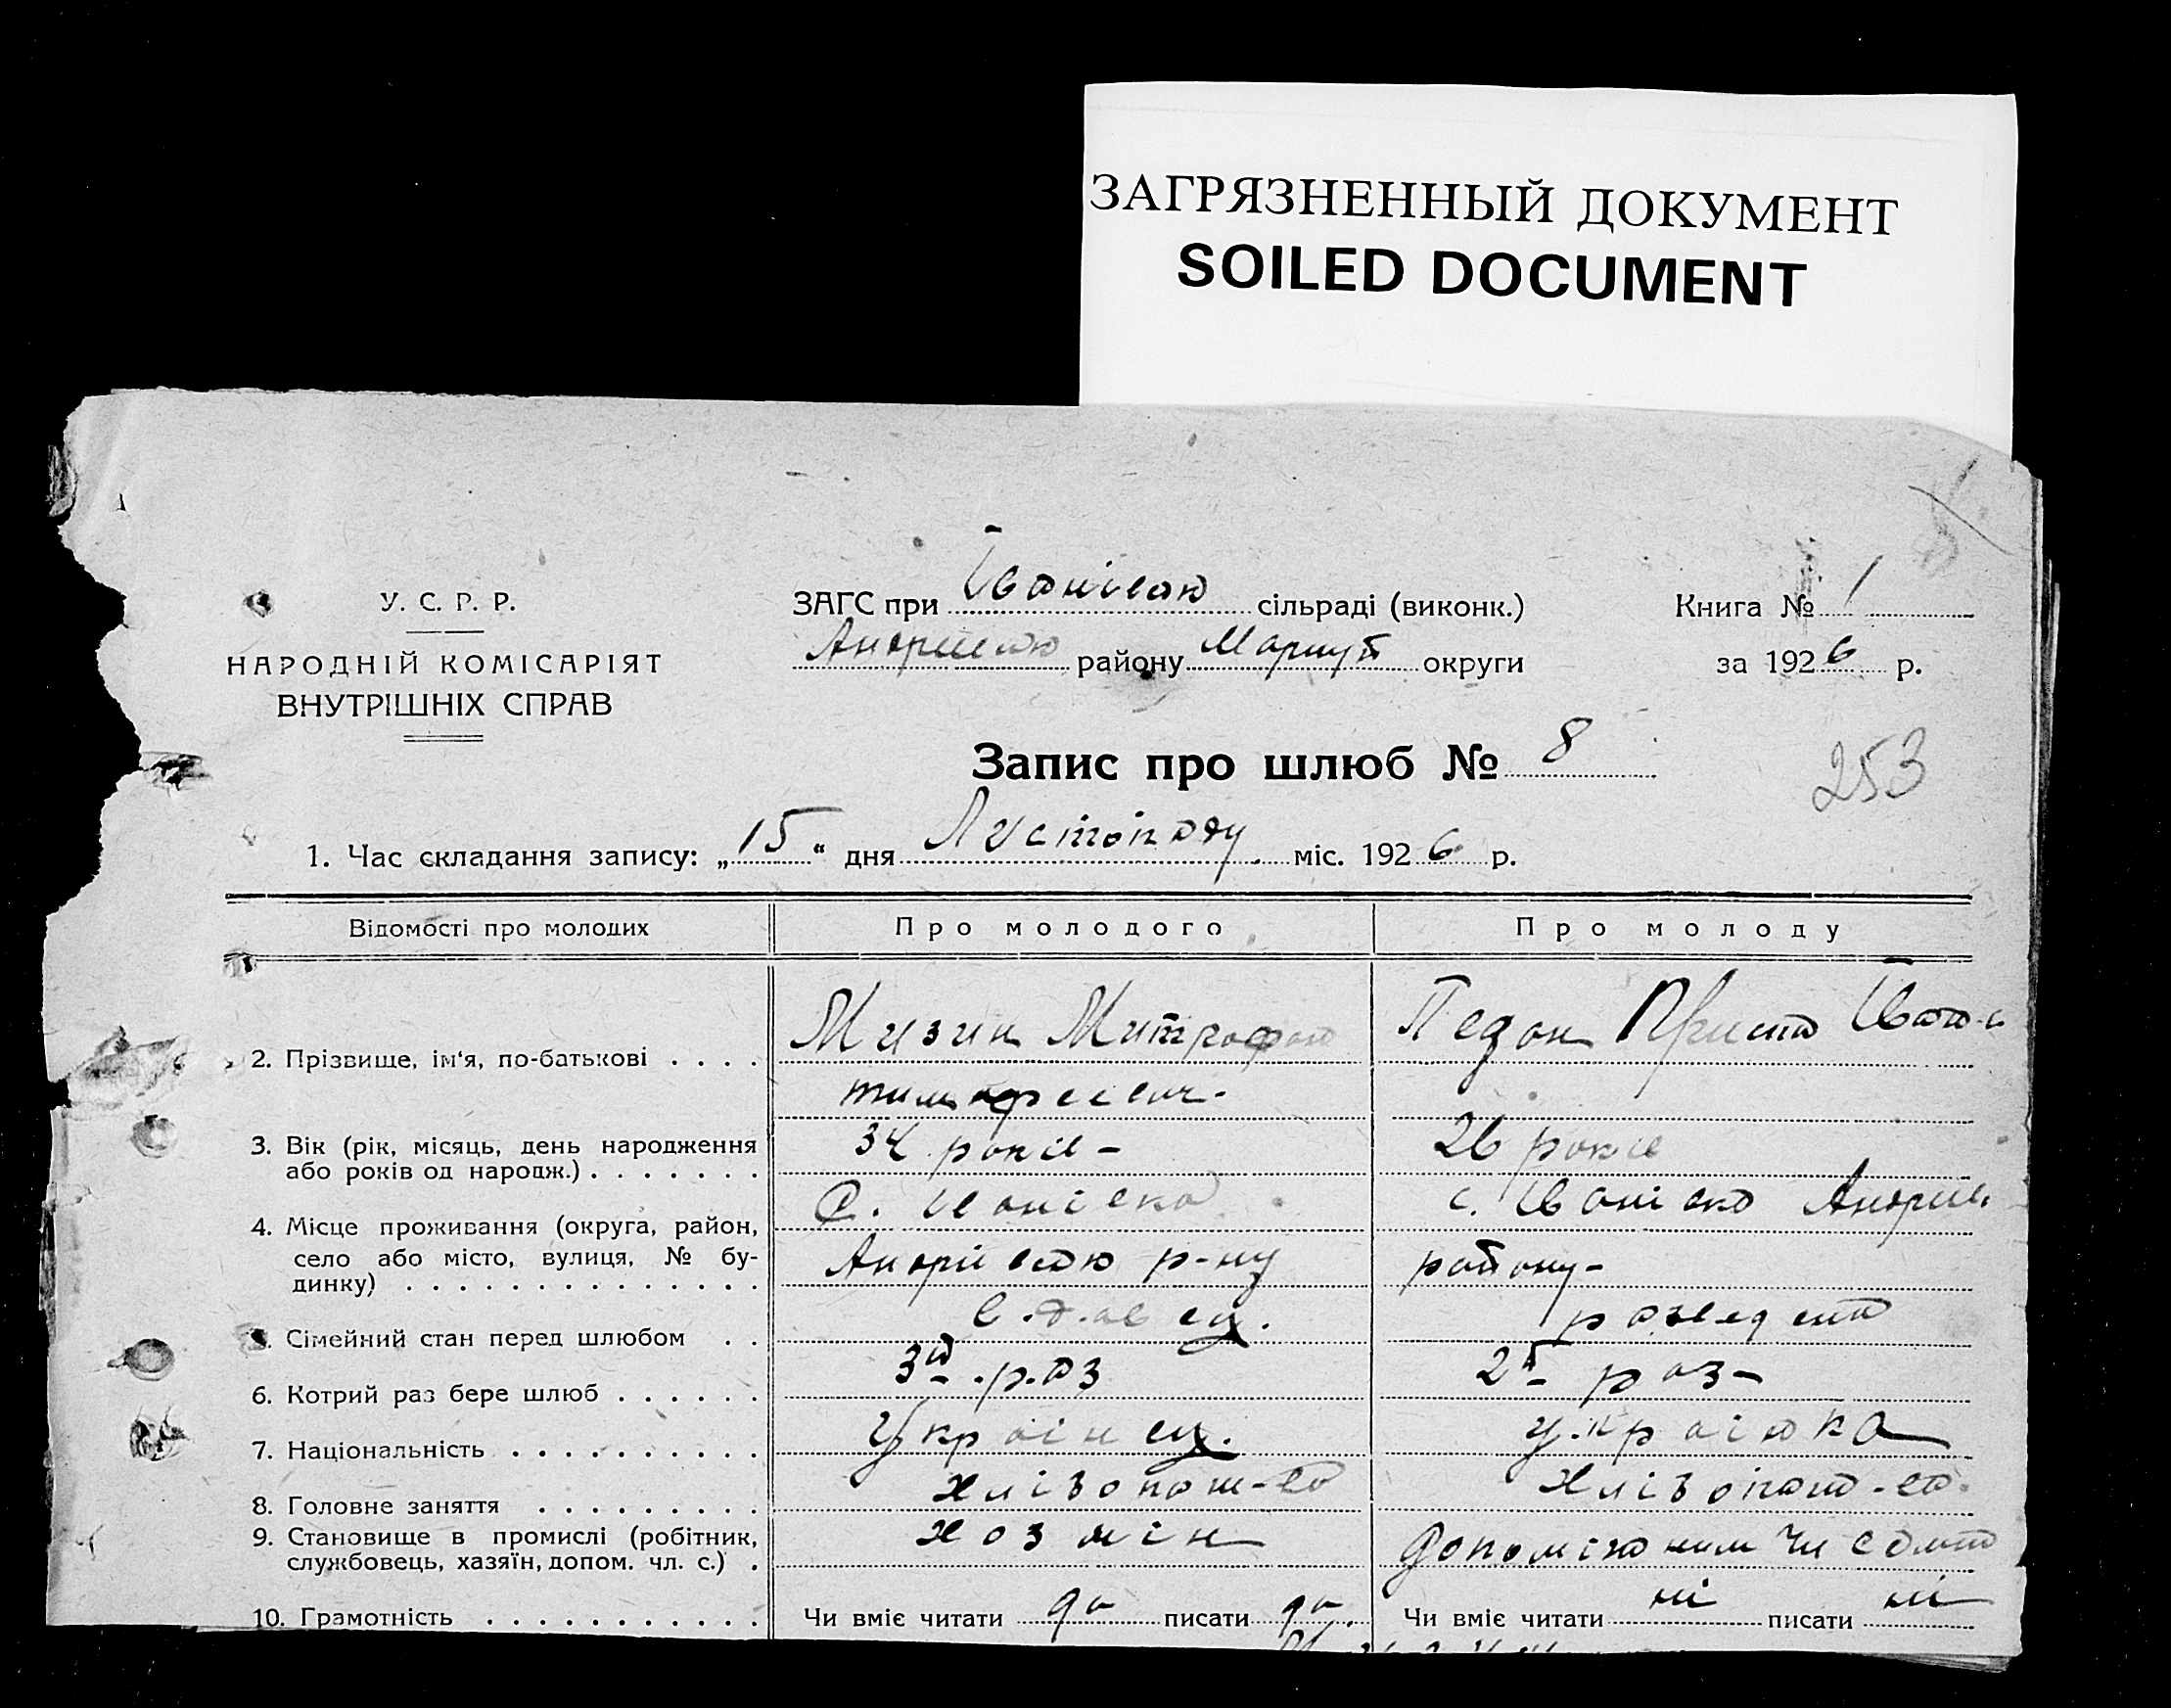 ЗАГРЯЗНЕННЫЙ ДОКУМЕНТ
SOILED DOCUMENT
У. С. Р. Р.
НАРОДНІЙ КОМІСАРІЯТ
ВНУТРІШНІХ СПРАВ
ЗАГС при сільраді (виконк.)
району округи
Книга № 1
за 1926 р.
Запис про шлюб № 8
253
1. Час складання запису: „15“ дня Листопаду міс. 1926 р.
Відомості про молодих
Про молодого
Про молоду
2. Прізвище, ім‘я, по-батькові . . . .
Мизин Митрофан
Педан Іван
3. Вік (рік, місяць, день народження
або років од народж.) . . . . . . .
34 років -
26 років
4. Місце проживання (округа, район,
село або місто, вулиця, № бу-
динку) . . . . . . . . . . . . . .
С. Іванівка
р-ну
с. Іванівка
району -
Сімейний стан перед шлюбом . .
вдавец.
разведена
6. Котрий раз бере шлюб . . . . . .
3й раз
2й раз -
7. Національність . . . . . . . . . .
Українец.
українка
8. Головне заняття . . . . . . . . .
хлібопаш-во
хлібопаш-во.
9. Становище в промислі (робітник,
службовець, хазяїн, допом. чл. с.) .
хозяін
10. Грамотність . . . . . . . . . . .
Чи вміє читати да писати да.
Чи вміє читати ні писати ні